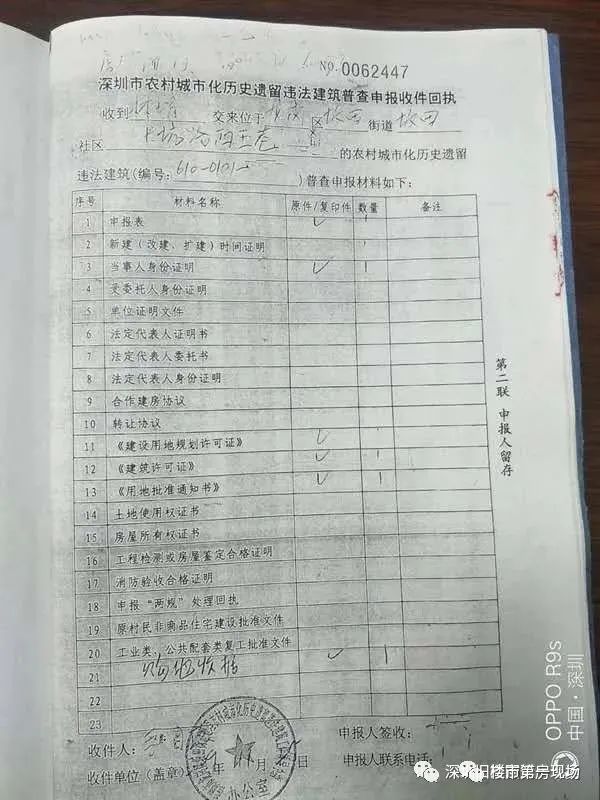 NO. 0062447
深圳市农村城市化历史遗留违法建筑普查申报收件回执
收到 交来位于 区 坂田 街道 坂田
社区 的农村城市化历史遗留
违法建筑(编号: 610-0101 )普查申报材料如下:
序号 材料名称 原件/复印件 数量 备注
1 申报表 ✓ 1
2 新建(改建、扩建)时间证明
3 当事人身份证明 ✓ 1
4 受委托人身份证明
5 单位证明文件
6 法定代表人证明书
7 法定代表人委托书
8 法定代表人身份证明
9 合作建房协议
10 转让协议
11 《建设用地规划许可证》 ✓
12 《建筑许可证》 ✓ 1
13 《用地批准通知书》 ✓ 1
14 土地使用权证书
15 房屋所有权证书
16 工程检测或房屋鉴定合格证明
17 消防验收合格证明
18 申报“两规”处理回执
19 原村民非商品住宅建设批准文件
20 工业类、公共配套类复工批准文件
21 收据 ✓ 1
22
23
收件人: 申报人签收:
收件单位(盖章) 申报人联系电话:
办公室
第二联 申报人留存
OPPO R9s
中国·深圳
深圳旧楼市第房现场